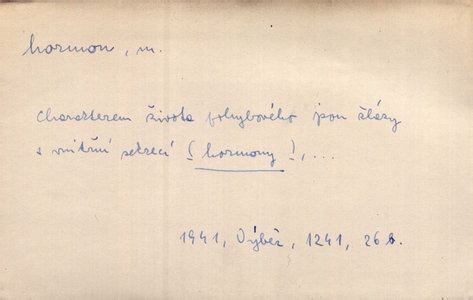 hormon, m.
Charakterem života pohybového jsou žlázy
s vnitřní sekrecí (hormony), ...
1941, Výběr, 1241, 26 b.